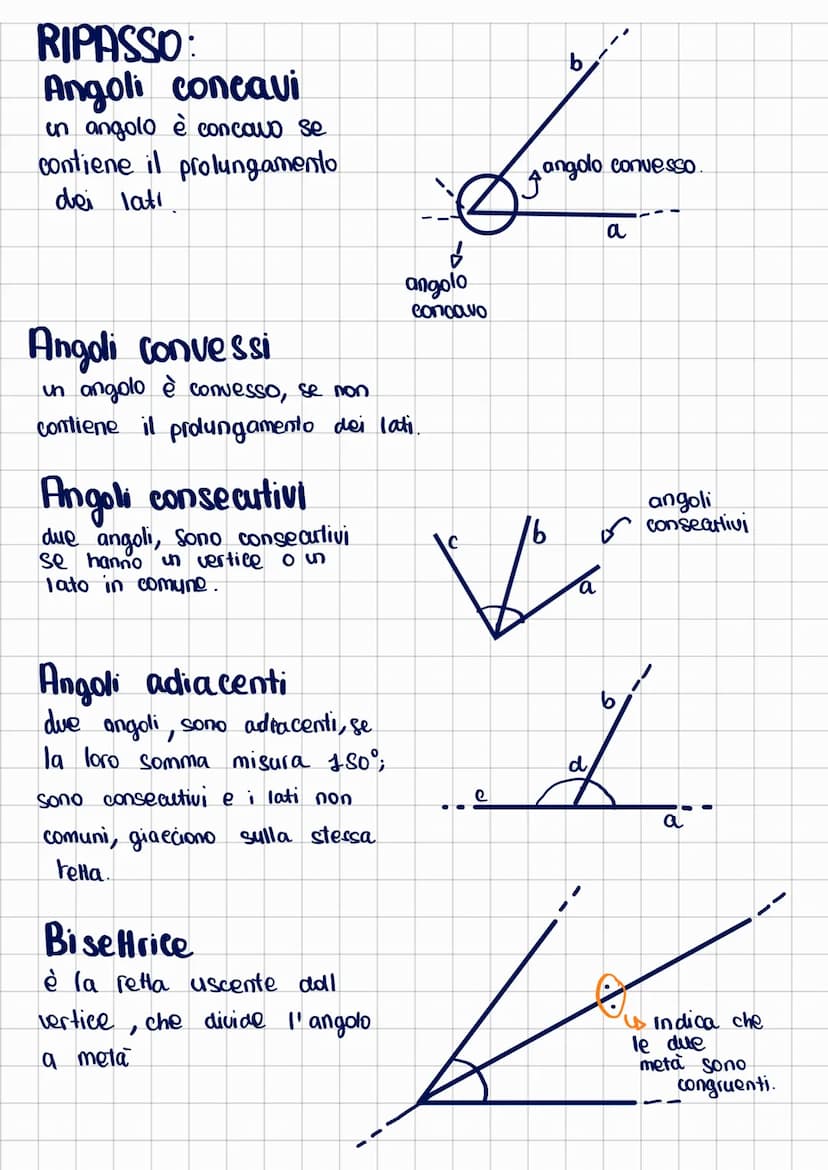 RIPASSO:
Angoli concavi
un angolo è concavo se
contiene il prolungamento
dei lati.
b
angolo convesso.
a
angolo
concavo
Angoli convessi
un angolo è convesso, se non
contiene il prolungamento dei lati.
Angoli consecutivi
due angoli, sono consecutivi
se hanno un vertice o un
lato in comune.
angoli
consecutivi
c
b
a
Angoli adiacenti
due angoli, sono adiacenti, se
la loro somma misura 180°;
sono consecutivi e i lati non
comuni, giacciono sulla stessa
retta.
b
d
c
a
Bisettrice
è la retta uscente dall
vertice, che divide l'angolo
a metà
indica che
le due
metà sono
congruenti.